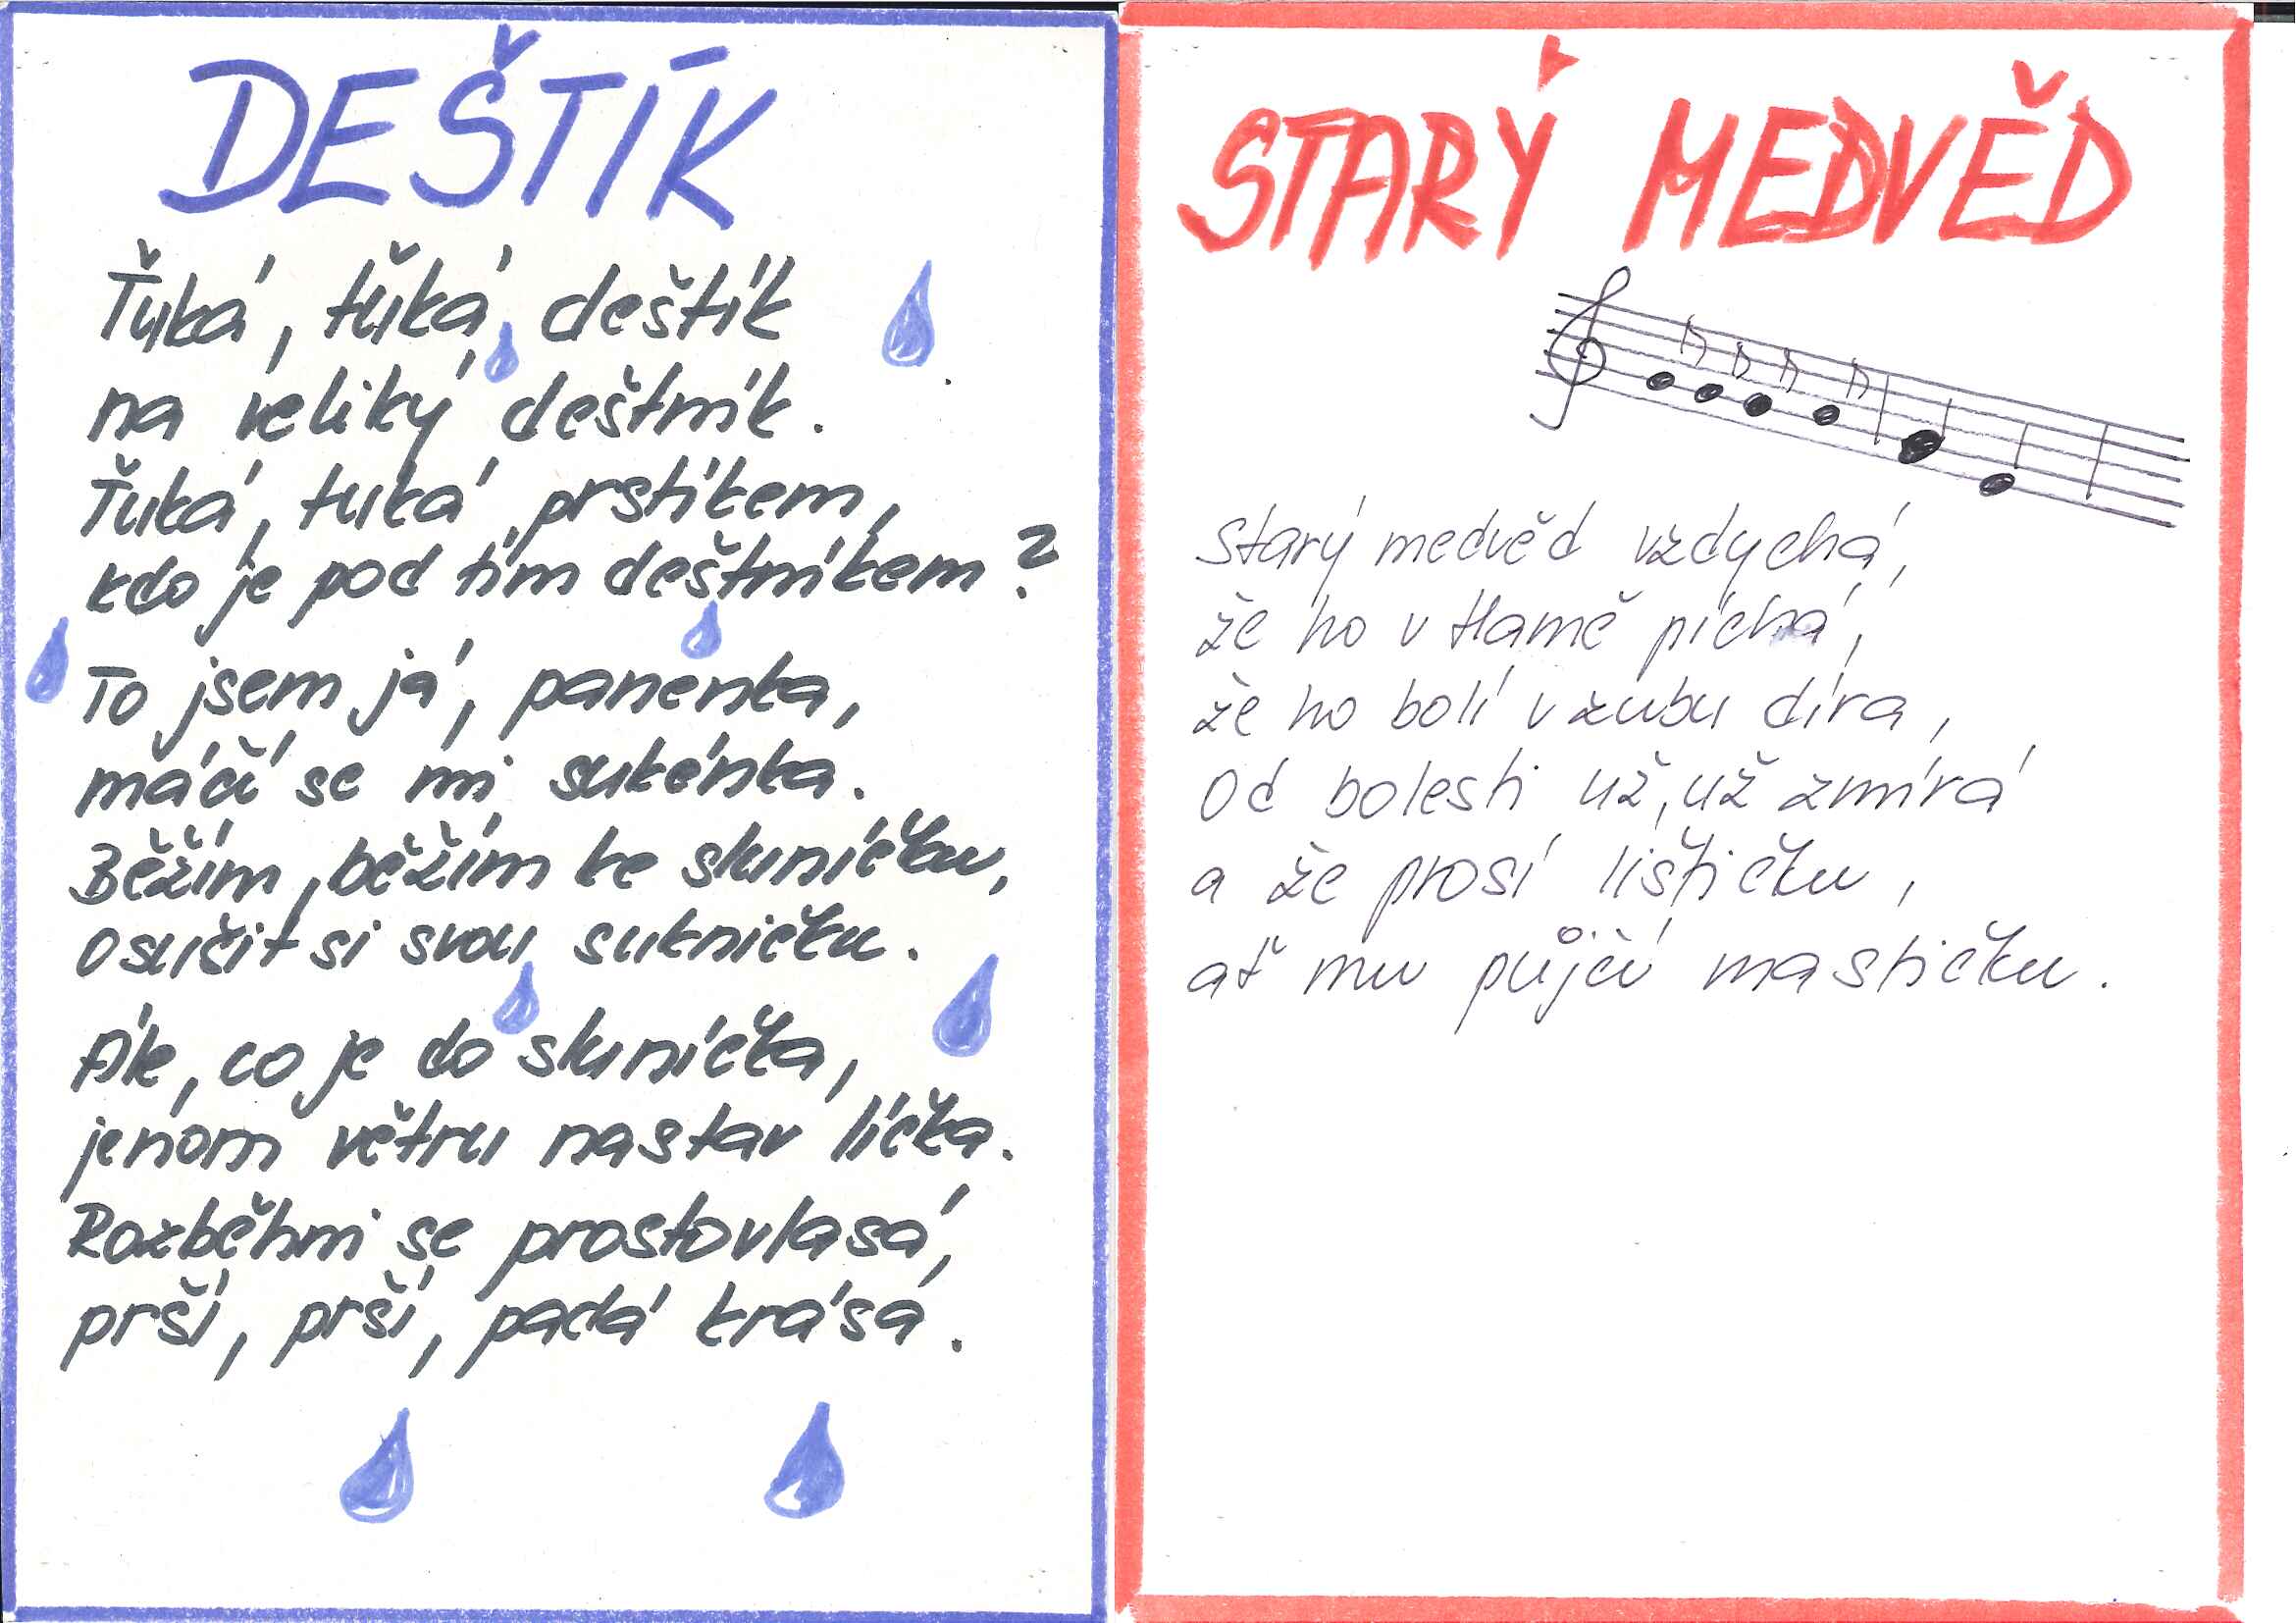 DEŠTÍK
Ťuká, ťuká deštík
na veliký deštník.
Ťuká, tuká prstíkem,
kdo je pod tím deštníkem?
To jsem já, panenka,
máčí se mi sukénka.
Běžím, běžím ke sluníčku,
osušit si svou sukničku.
Ále, co je do sluníčka,
jenom větru nastav líčka.
Rozběhni se prostovlasá,
prší, prší, padá krása.
STARÝ MEDVĚD
Starý medvěd vzdychá,
že ho v tlamě píchá,
že ho bolí v zubu díra,
Od bolesti už, už zmírá
a že prosí lištičku,
ať mu půjčí mastičku.